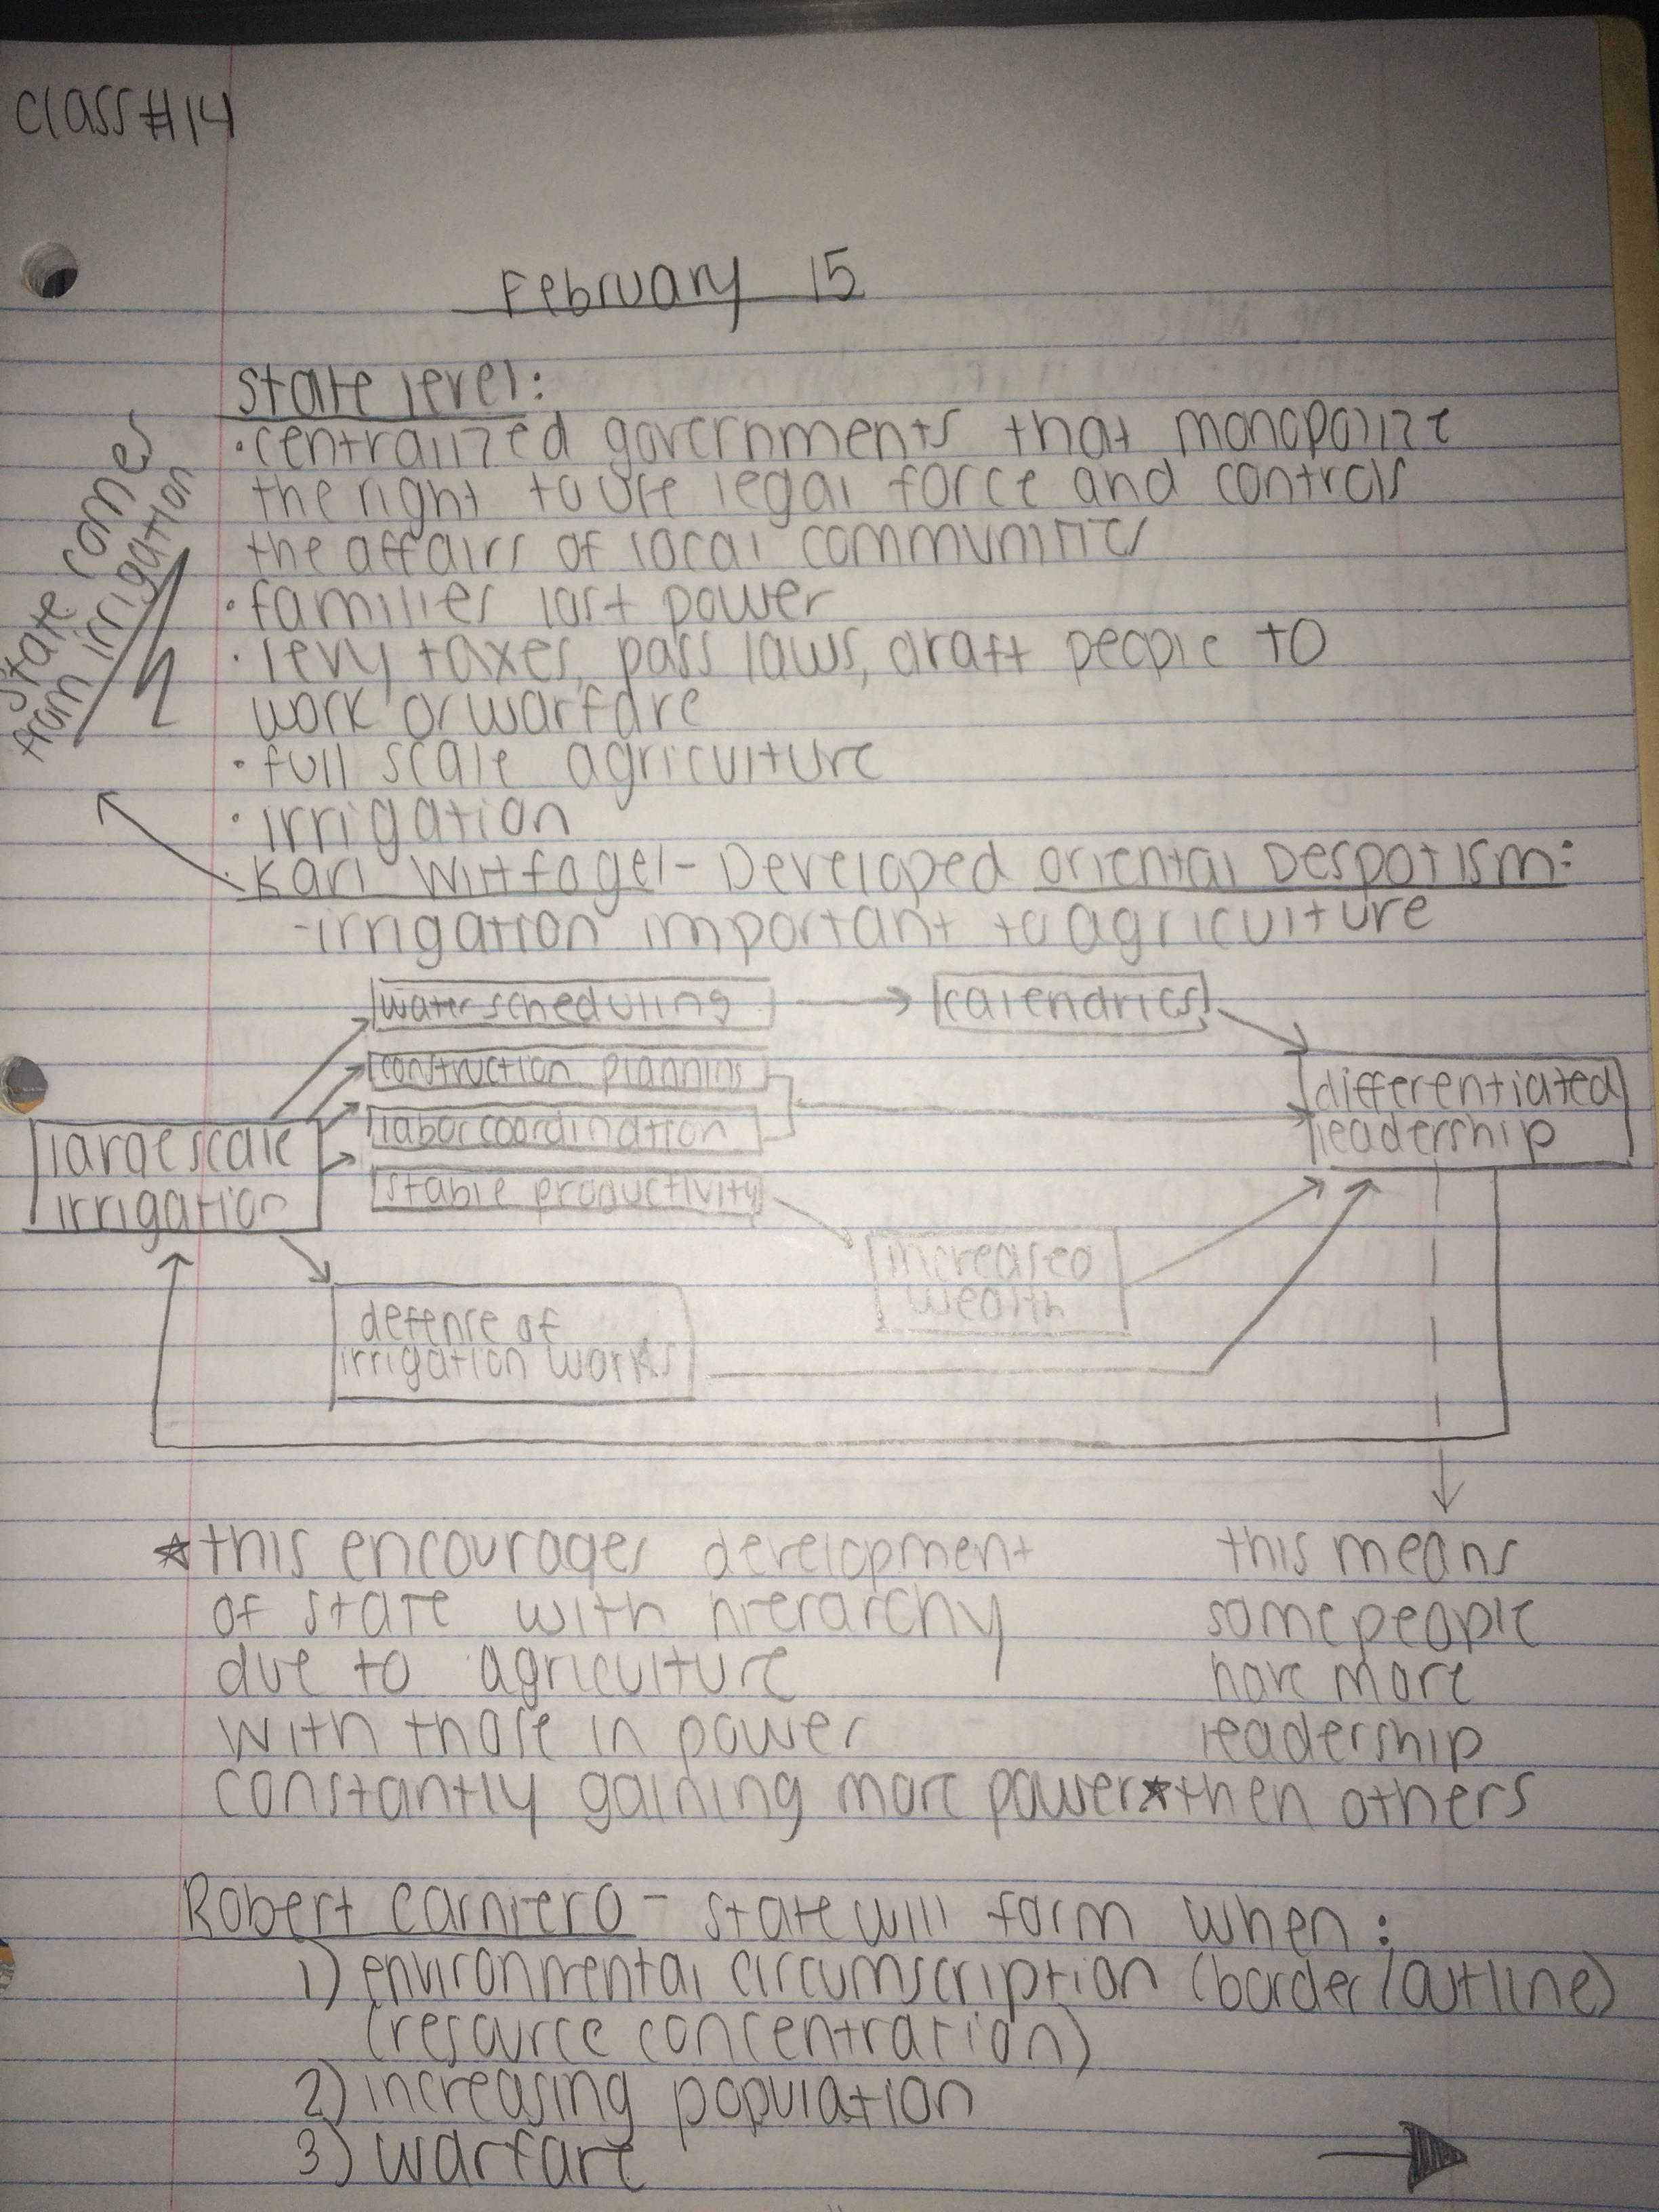 class #14
February 15
state level:
· centralized governments that monopolize
the right to use legal force and controls
the affairs of local communities
· families lost power
· levy taxes, pass laws, draft people to
work or warfare
· full scale agriculture
· irrigation
· Karl Wittfogel - Developed oriental Despotism:
- irrigation important to agriculture
state comes
from irrigation
water scheduling
calendrics
construction planning
differentiated
leadership
labor coordination
large scale
irrigation
stable productivity
increased
wealth
defense of
irrigation works
☆ this encourages development
of state with hierarchy
due to agriculture
with those in power
constantly gaining more power ☆
this means
some people
have more
leadership
then others
Robert Carniero - state will form when:
1) environmental circumscription (border/outline)
(resource concentration)
2) increasing population
3) warfare